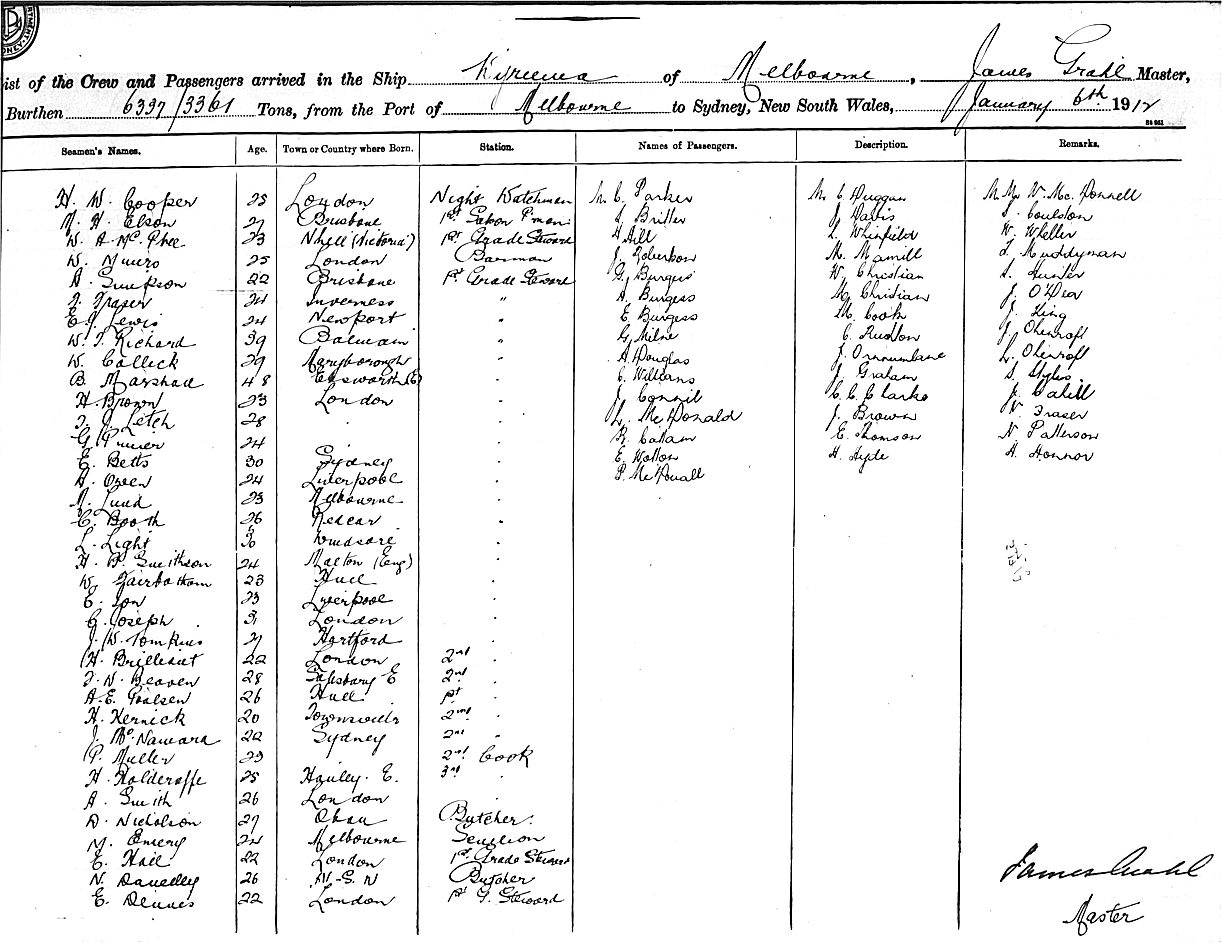 ist of the Crew and Passengers arrived in the Ship Kyreema of Melbourne, James Grahl Master,
Burthen 6337/3361 Tons, from the Port of Melbourne to Sydney, New South Wales, January 6th 1912
Seamen's Names. Age. Town or Country where Born. Station. Names of Passengers. Description. Remarks.
H. W. Cooper 25 London Night Watchman M. C. Parker M. E. Duggan W. Mc. Donnell
H. Elson 27 Brisbane 1st Saloon P man Britter J. Davis J. Coulston
W. A. Mc. Phee 23 Nhill (Victoria) 1st Grade Steward H. Hill L. Whinfield W. Wheller
W. Munro 25 London Barman J. Robertson M. Merrill T. Muddyman
A. Simpson 22 Brisbane 1st Grade Steward G. Burgess W. Christian A. Hunter
J. Fraser 24 Inverness " A. Burgess M. Christian J. O'Dea
E. J. Lewis 24 Newport " E. Burgess M. Cook J. King
W. T. Richard 39 Balmain " G. Milne C. Ruddon J. Ohenroft
W. Collick 29 Maryborough " A. Douglas J. L. Ohenroft
B. Marshall 48 (E) " C. Williams J. Graham S. Styles
H. Brown 23 London " J. Connil C. C. Clarke J. Cahill
T. J. Letch 28 " " L. McDonald J. Brown V. Fraser
G. 24 " R. Callam E. Thomson N. Patterson
E. Betts 30 Sydney " E. Wotton H. Hyde H. Honnor
A. Green 24 Liverpool " P. McDouall
Lund 23 Melbourne "
C. Booth 26 Redcar "
L. Light 30 Windsor "
H. P. Smithson 24 Malton (Eng) "
W. Fairbotham 23 Hull "
E. Ion 23 Liverpool "
G. Joseph 31 London "
J. W. Tompkins 27 Hartford "
H. Brilliant 22 London 2nd "
J. N. Beaven 28 Salisbury E 2nd "
A. E. Poulsen 26 Hull 1st "
H. Kernick 20 Townsville 2nd "
J. McNamara 22 Sydney 2nd "
P. Muller 23 2nd Cook
H. Holdcroffe 25 Hanley. E. 3rd "
A. Smith 26 London
D. Nicholson 27 Oban Butcher.
M. Emery 24 Melbourne Scullion
E. Hall 22 London 1st Grade Steward
N. Danelley 26 N. S. W Butcher
E. Dennes 22 London 1st G. Steward
James Grahl
Master